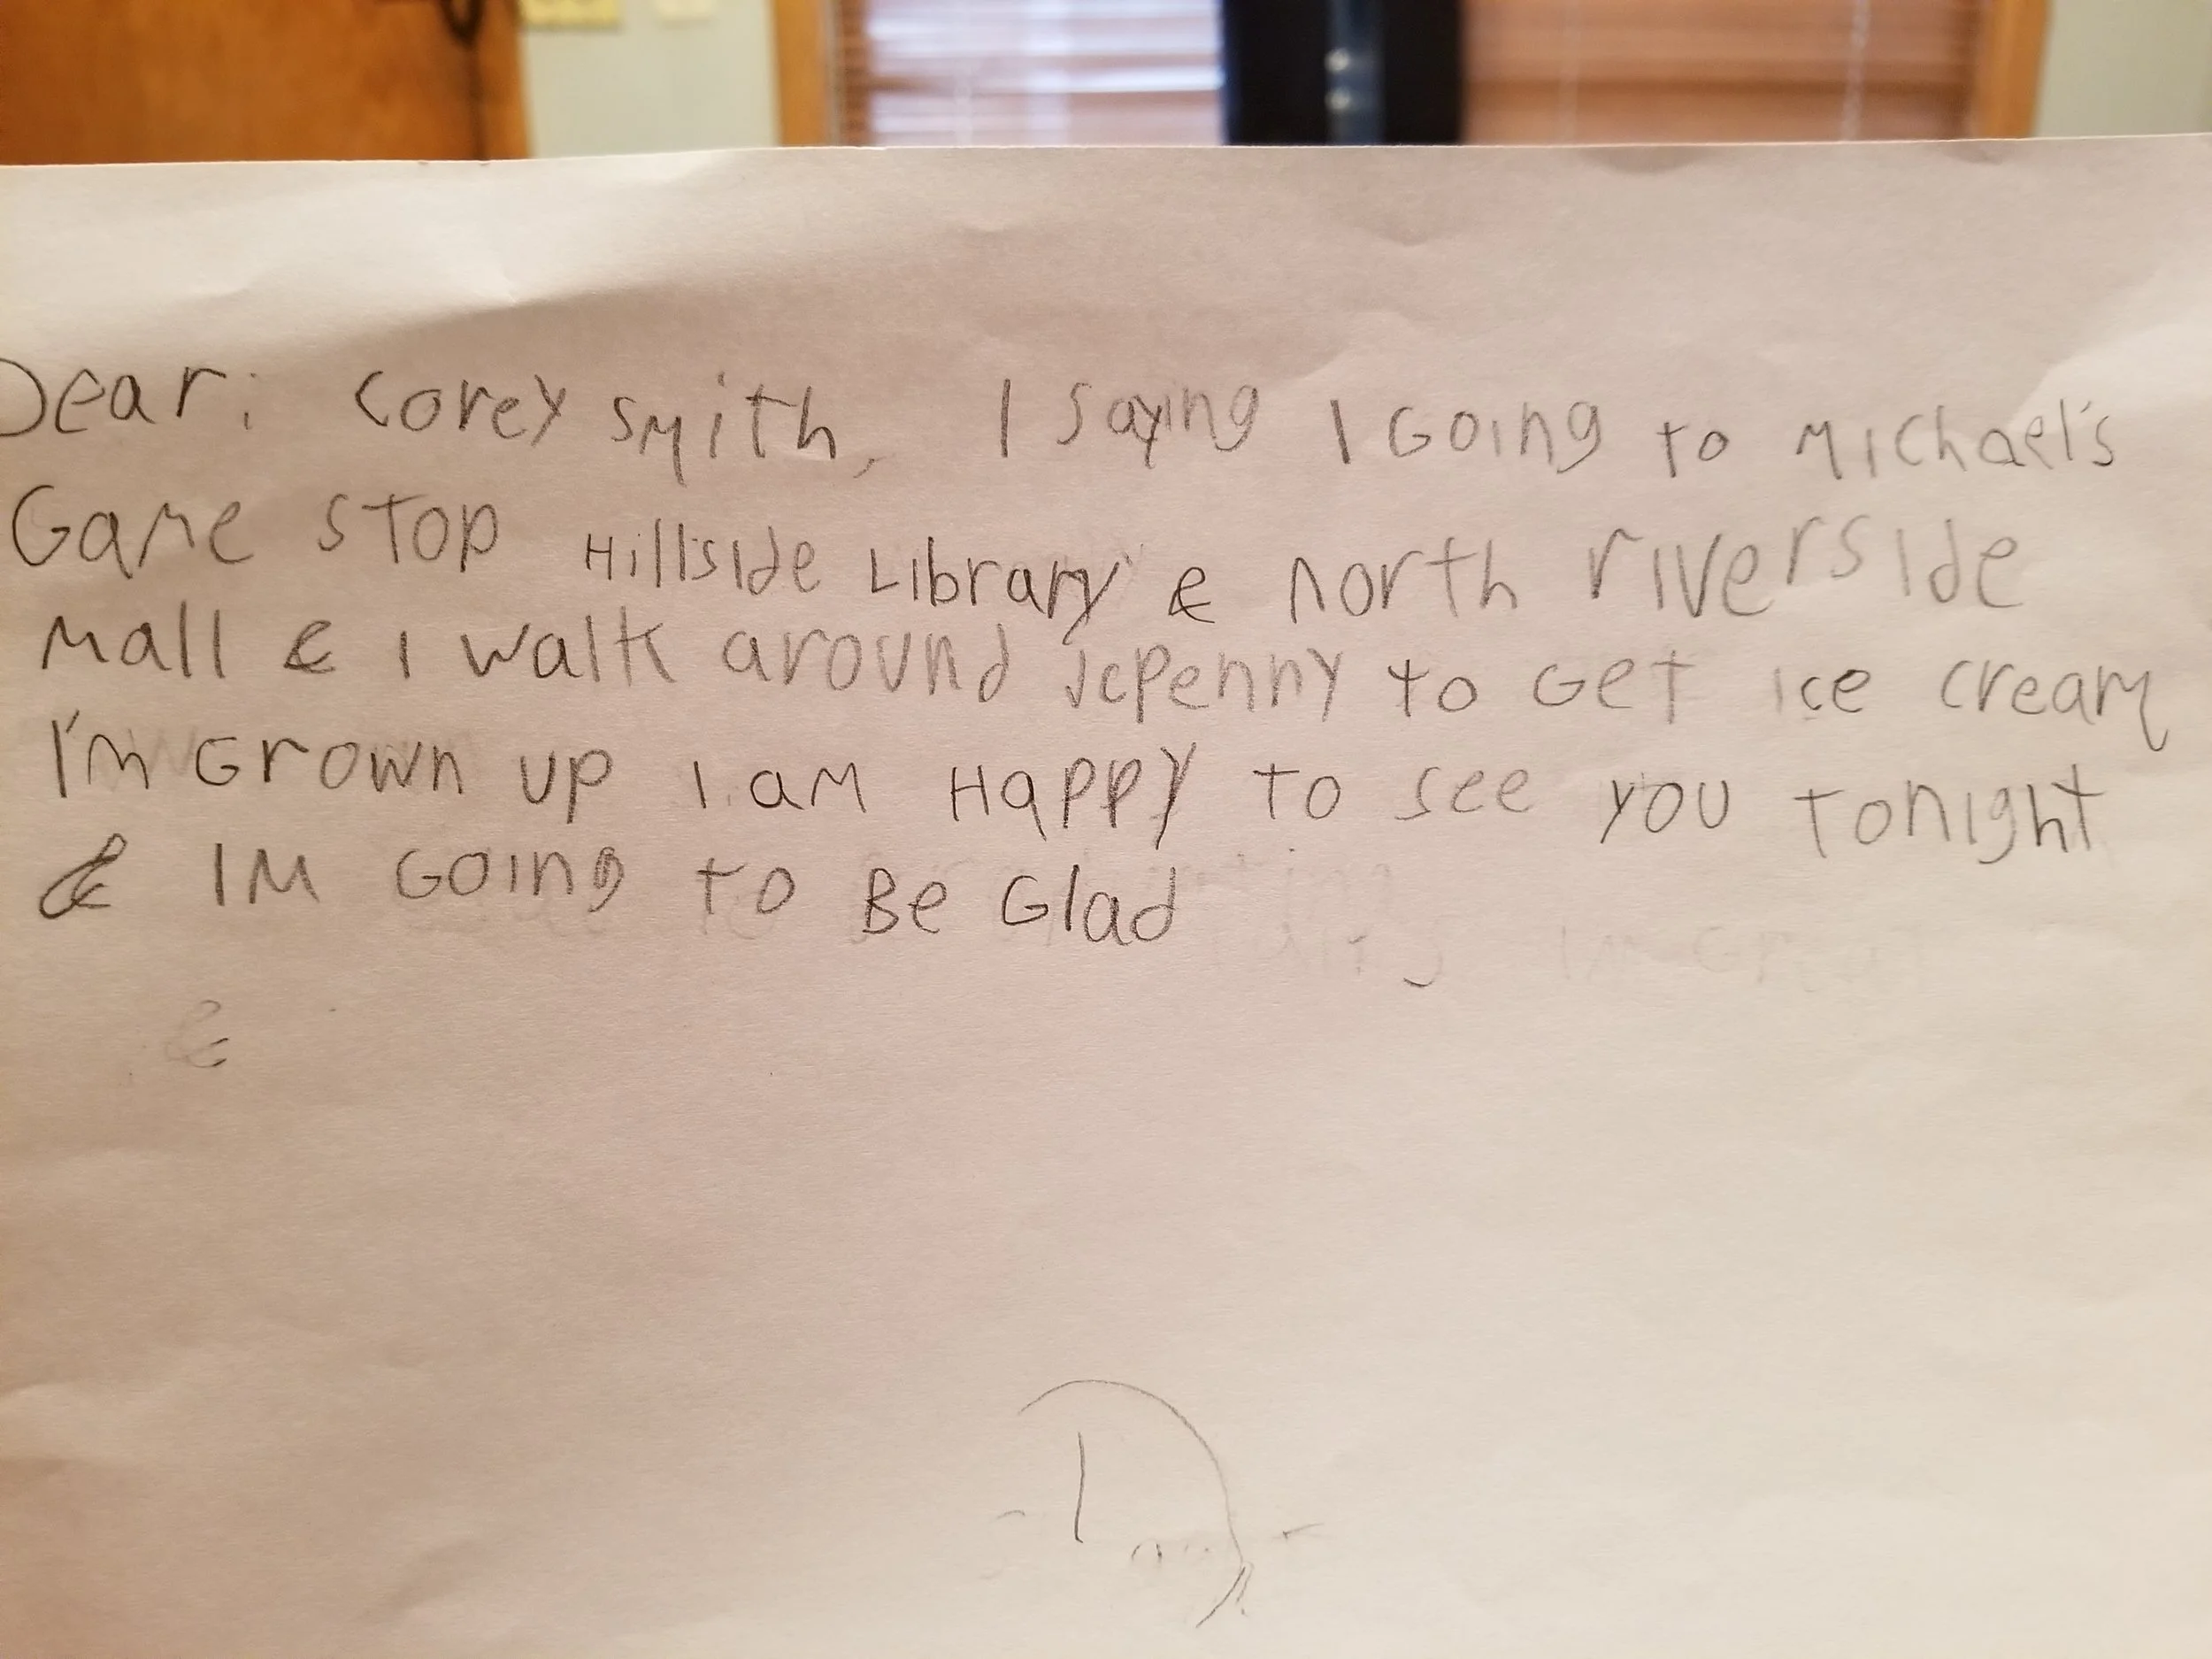 Dear: Corey Smith, I saying I Going to Michael's
Game Stop Hillside Library & north riverside
Mall & I walk around Jcpenny to Get ice cream
I'm Grown up I am Happy to see you tonight
& IM Going to Be Glad
&